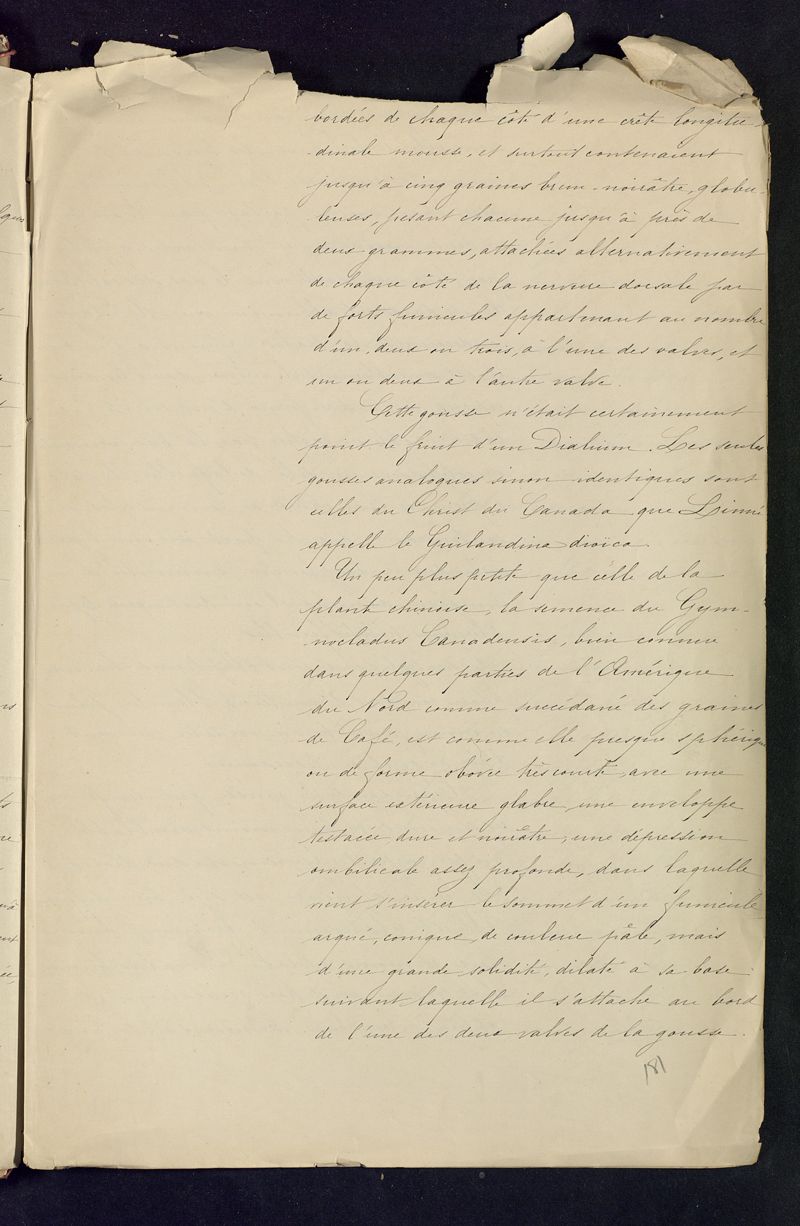 bordées de chaque côté d'une crête longitu-
dinale mousse, et surtout contenaient
jusqu'à cinq graines brun-noirâtre, globu-
leuses, pesant chacune jusqu'à près de
deux grammes, attachées alternativement
de chaque côté de la nervure dorsale par
de forts funicules appartenant au nombre
d'un, deux ou trois, à l'une des valves, et
un ou deux à l'autre valve.
Cette gousse n'était certainement
point le fruit d'un Dialium. Les seules
gousses analogues sinon identiques sont
celles du Christ du Canada que Linné
appelle le Guilandina dioïca
Un peu plus petite que celle de la
plante chinoise, la semence du Gym-
nocladus Canadensis, bien connue
dans quelques parties de l'Amérique
du Nord comme succédané des graines
de Café, est comme elle presque sphérique
ou de forme obovée très courte, avec une
surface extérieure glabre, une enveloppe
testacée, dure et noirâtre, une dépression
ombilicale assez profonde, dans laquelle
vient s'insérer le sommet d'un funicule
arqué, conique, de couleur pâle, mais
d'une grande solidité, dilaté à sa base
suivant laquelle il s'attache au bord
de l'une des deux valves de la gousse.
181